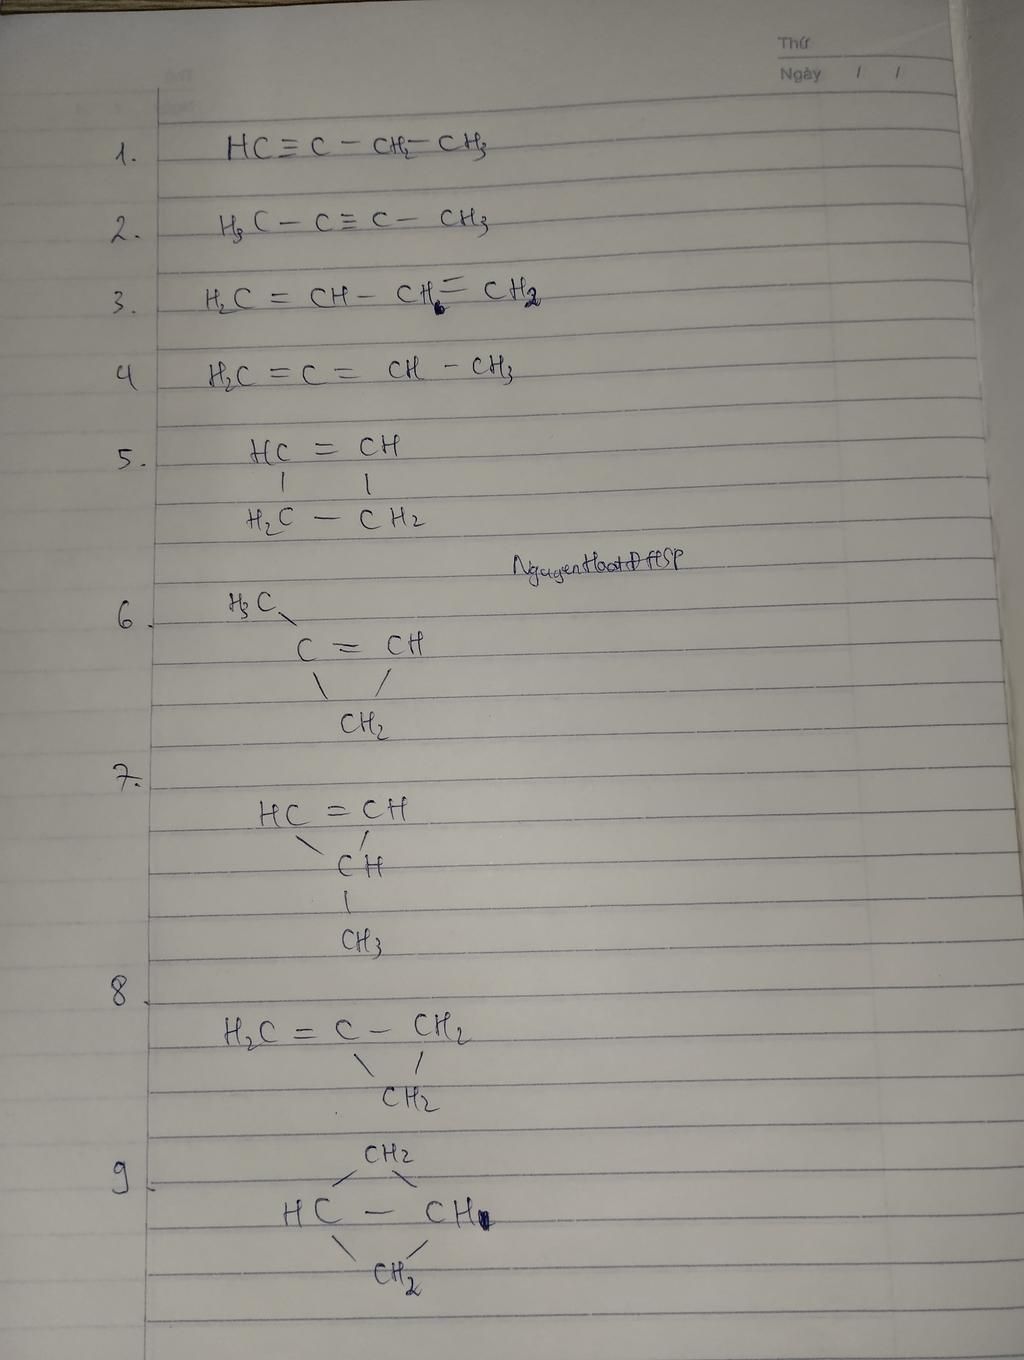 Thứ
Ngày / /
1. HC ≡ C – CH₂ – CH₃
2. H₃C – C ≡ C – CH₃
3. H₂C = CH – CH = CH₂
4 H₂C = C = CH – CH₃
5. HC = CH
| |
H₂C – CH₂
NguyenHoatĐHSP
6. H₃C
\
C = CH
\ /
CH₂
7.
HC = CH
\ /
CH
|
CH₃
8.
H₂C = C – CH₂
\ /
CH₂
CH₂
9. / \
HC – CH
\ /
CH₂